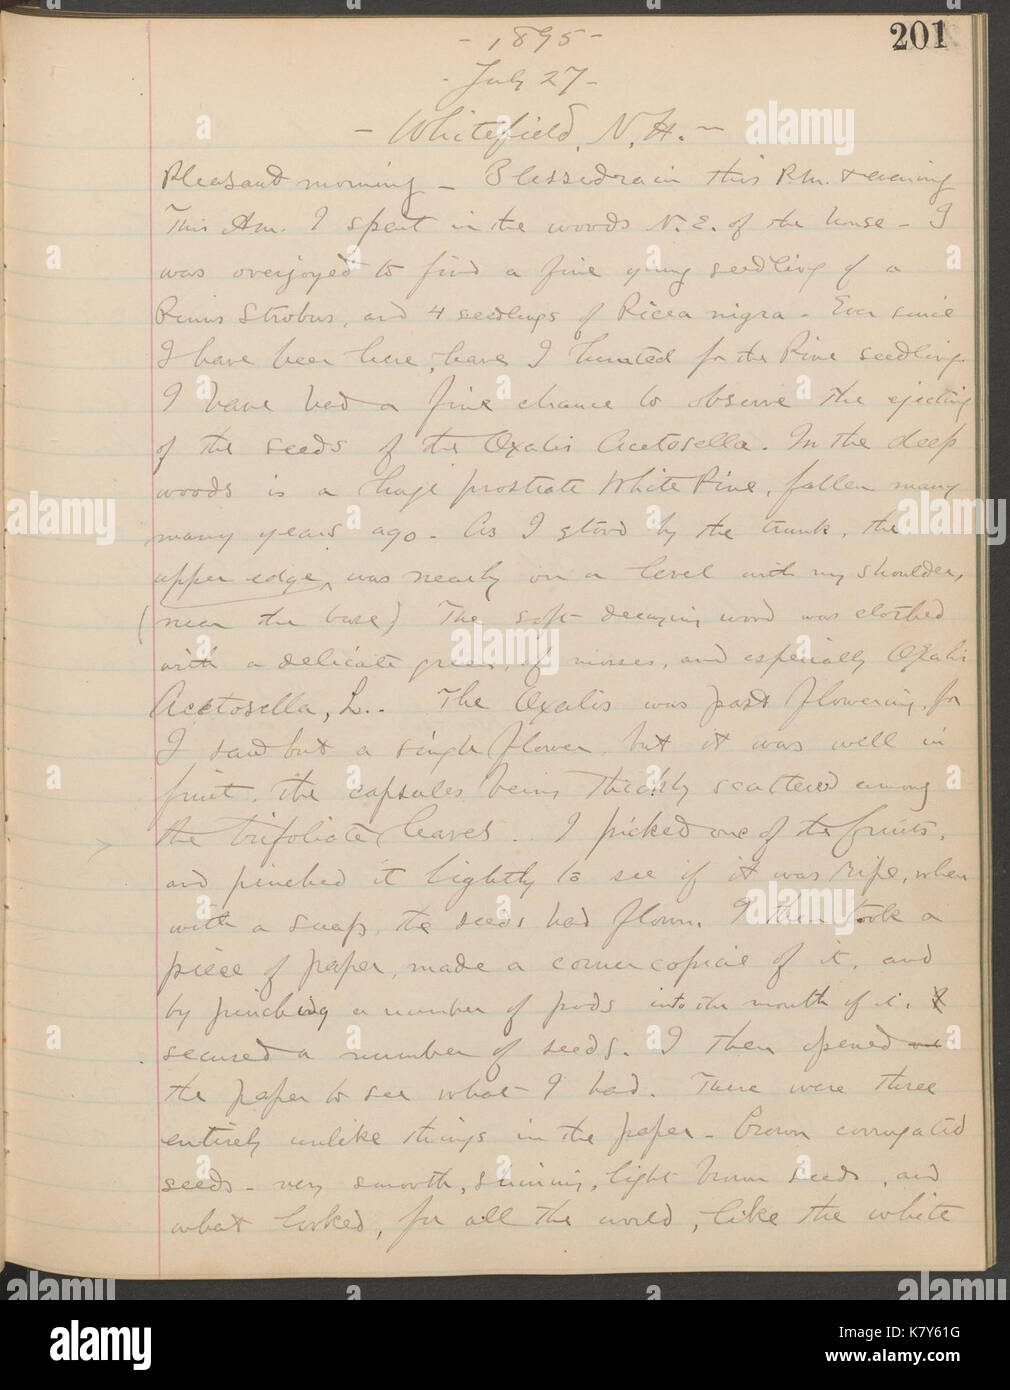 201
- 1895 -
- July 27 -
- Whitefield, N.H. -
Pleasant morning - Blessed rain this P.M. & evening
This Am. I spent in the woods N.E. of the house - I
was overjoyed to find a fine young seedling of a
Pinus Strobus, and 4 seedlings of Picea nigra - Ever since
I have been here, have I hunted for the Pine seedling.
I have had a fine chance to observe the ejecting
of the seeds of the Oxalis Acetosella. In the deep
woods is a huge prostrate White Pine, fallen many
many years ago - As I stood by the trunk, the
upper edge, was nearly on a level with my shoulder,
(near the base) The soft decaying wood was clothed
with a delicate green, of mosses, and especially Oxalis
Acetosella, L.. The Oxalis was past flowering, for
I saw but a single flower, but it was well in
fruit, the capsules being thickly scattered among
the trifoliate leaves.. I picked one of the fruits,
and pinched it lightly to see if it was ripe, when
with a snap, the seeds had flown. I then took a
piece of paper, made a cornercopiae of it, and
by pinching a number of pods into the mouth of it, I
secured a number of seeds. I then opened
the paper to see what I had. There were three
entirely unlike things in the paper - Brown corrugated
seeds - very smooth, shining, light brown seeds, and
what looked, for all the world, like the white
alamy
Image ID: K7Y61G
www.alamy.com